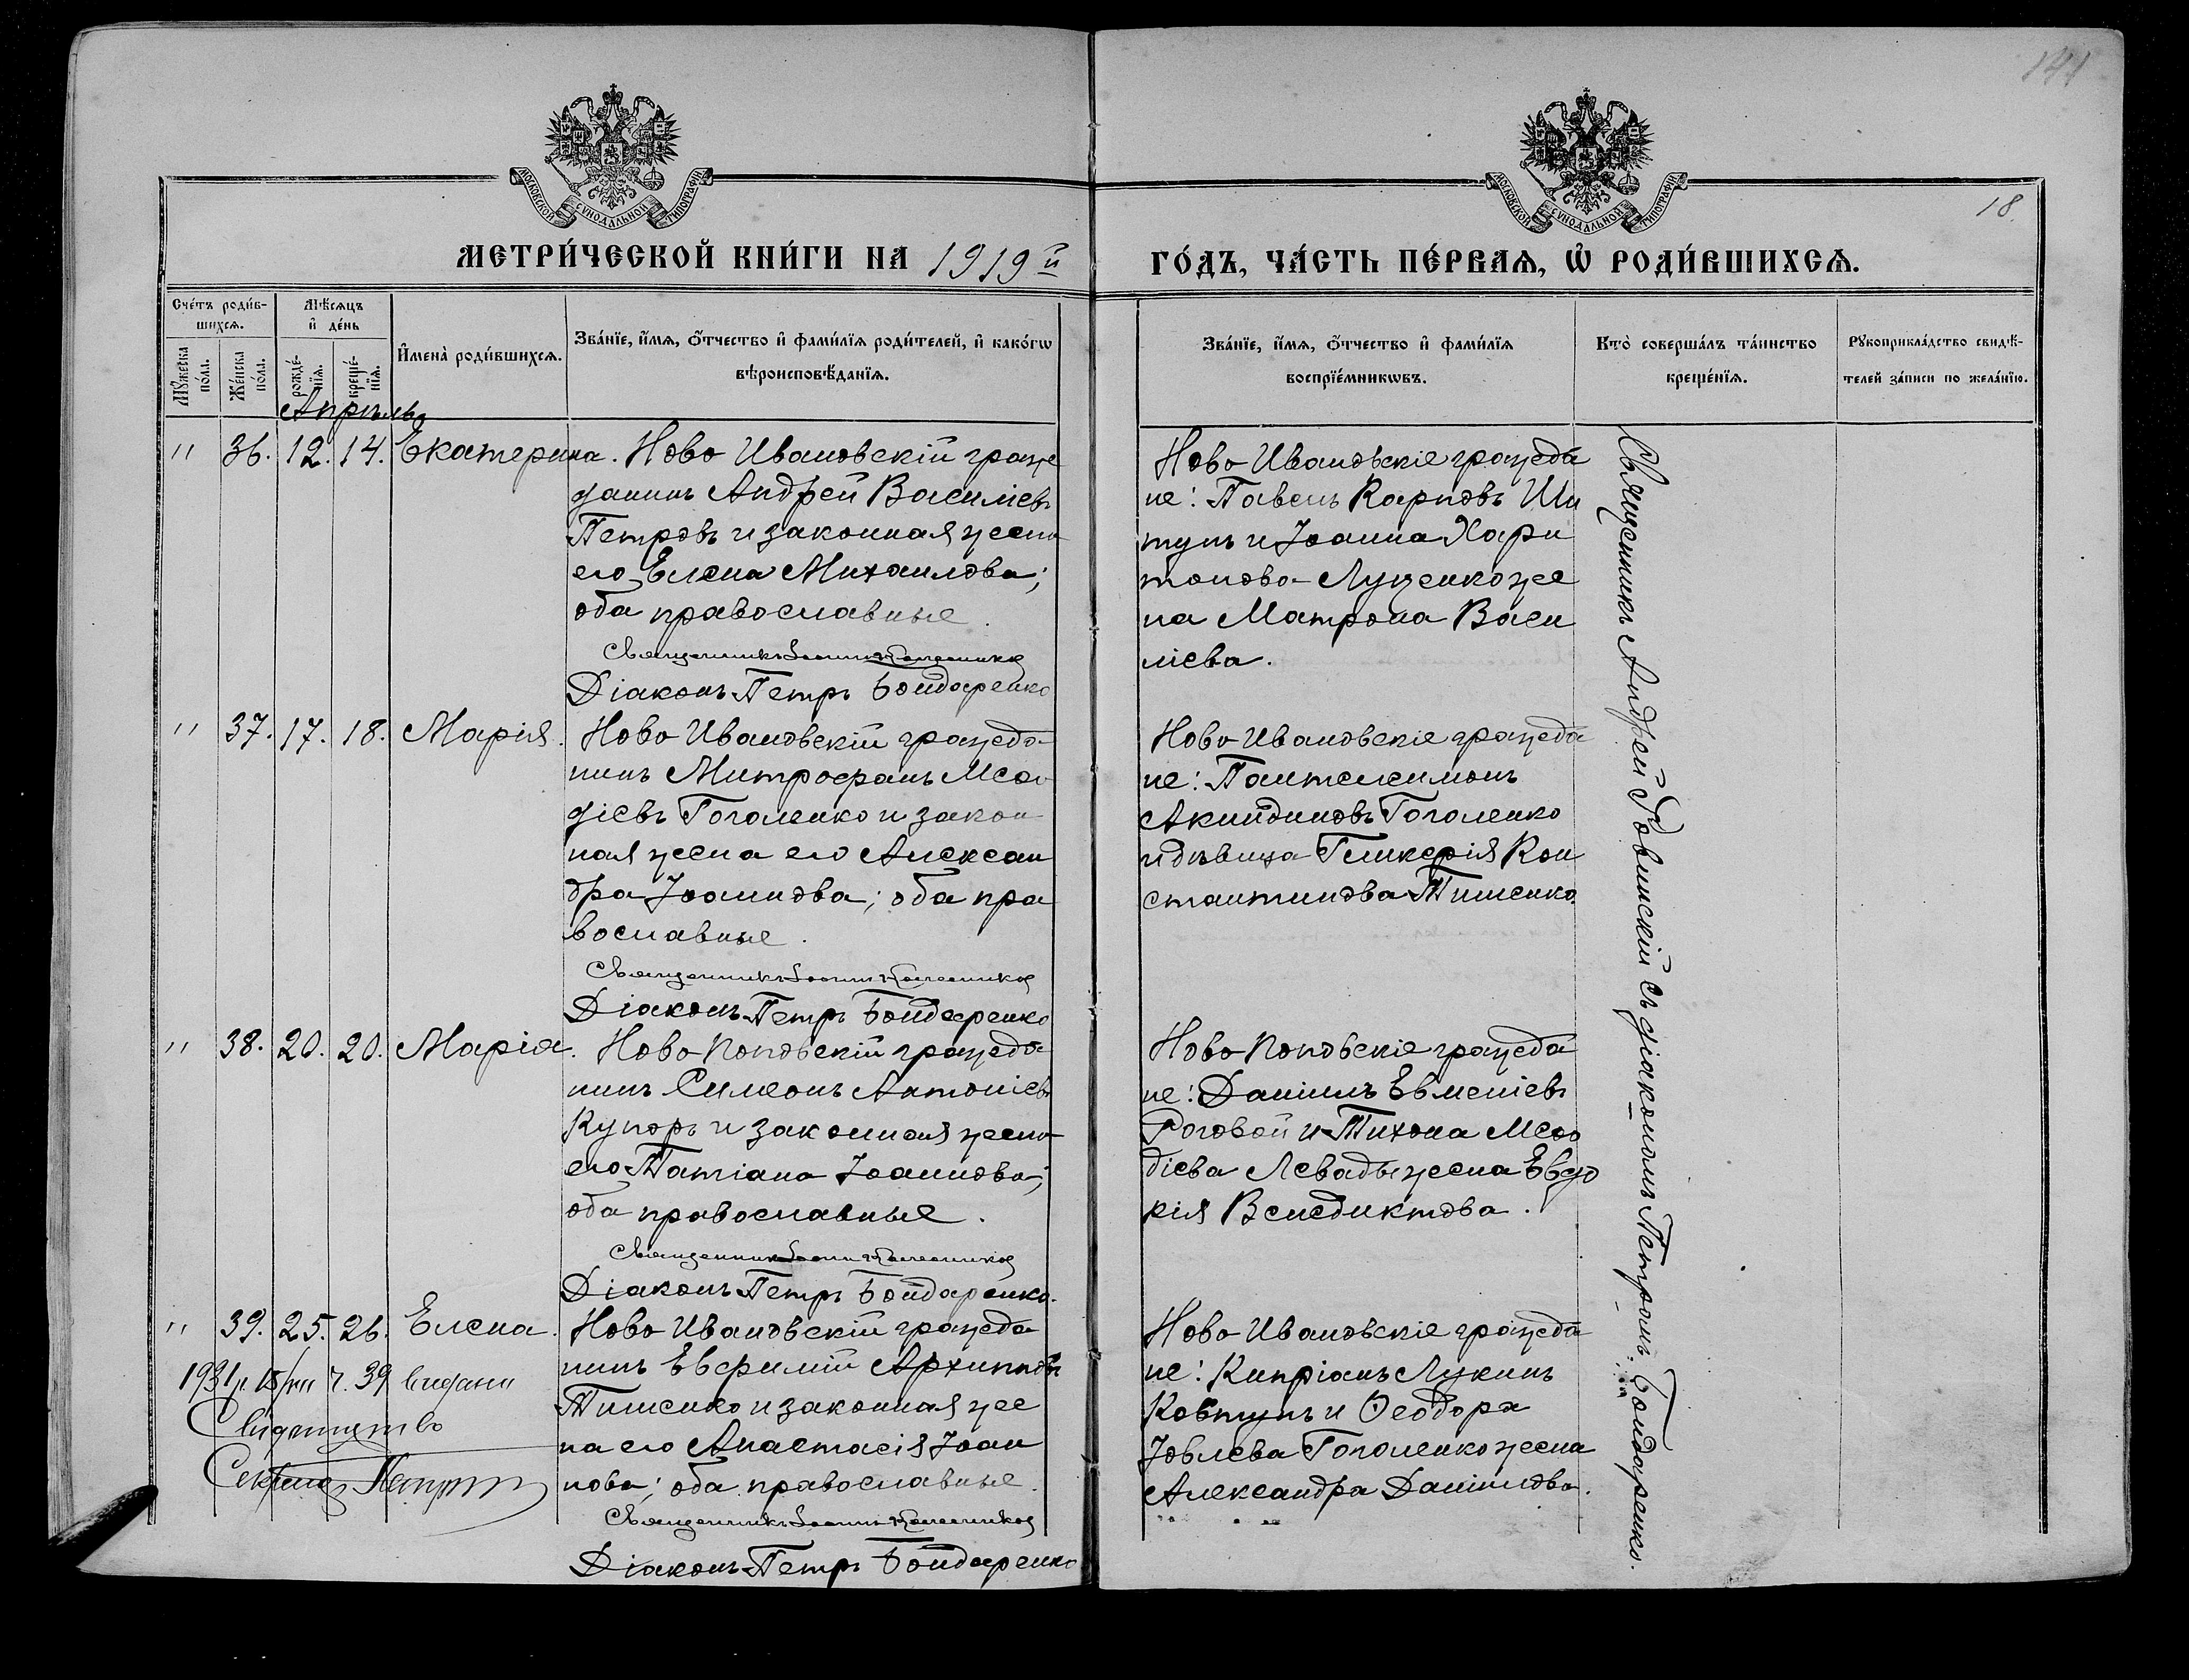 141
18.
МОСКОВСКОЙ СѴНОДАЛЬНОЙ ТИПОГРАФІИ
МОСКОВСКОЙ СѴНОДАЛЬНОЙ ТИПОГРАФІИ
МЕТРИ́ЧЕСКОЙ КНИ́ГИ НА 1919й
ГО́ДЪ, ЧА́СТЬ ПЕ́РВАѦ, Ѡ҆ РОДИ́ВШИХСѦ.
Сче́тъ роди́в-
шихсѧ.
Мꙋ́жеска
по́ла.
Же́нска
по́ла.
Мѣ́сѧцъ
и҆ де́нь
рожде́-
нїѧ.
креще́-
нїѧ.
И҆мена̀ роди́вшихсѧ.
Зва́нїе, и҆́мѧ, ѻ҆́тчество и҆ фами́лїѧ роди́телей, и҆ како́гѡ
вѣроисповѣ́данїѧ.
Зва́нїе, и҆́мѧ, ѻ҆́тчество и҆ фами́лїѧ
воспрїе́мникѡвъ.
Кто̀ соверша́лъ та́инство
креще́нїѧ.
Рꙋкоприкла́дство свидѣ́-
телей за́писи по жела́нїю.
Апрѣль
" 36. 12. 14. Екатерина. Ново Ивановскій граж
данинъ Андрей Василіевъ
Петровъ и законная жена
его Елена Михаилова;
оба православные.
Священникъ Іоаннъ
Діаконъ Петръ Бондаренко
Ново Ивановскіе гражда
не: Павелъ Карповъ Ши
тулъ и Іоанна Хари
тонова Луценко же
на Матрона Васи
ліева.
" 37. 17. 18. Марія. Ново Ивановскій гражда
нинъ Митрофанъ Меѳо
діевъ Гоголенко и закон
ная жена его Алексан
дра Іоаннова; оба пра
вославные.
Священникъ Іоаннъ
Діаконъ Петръ Бондаренко
Ново Ивановскіе гражда
не: Пантелеимонъ
Акиндиновъ Гоголенко
и дѣвица Гликерія Кон
стантинова Тишенко.
" 38. 20. 20. Марія. Ново Поповскій гражда
нинъ Симеонъ Антоніевъ
Купоръ и законная жена
его Татіана Іоаннова;
оба православные.
Священникъ Іоаннъ
Діаконъ Петръ Бондаренко.
Ново Поповскіе гражда
не: Даніилъ Евменіевъ
Роговой и Тихона Меѳо
діева Левады жена Евдо
кія Венедиктова.
" 39. 25. 26. Елена. Ново Ивановскій гражда
нинъ Евфимій Архиповъ
Тишенко и законная же
на его Анастасія Іоан
нова; оба православные.
Священникъ Іоаннъ
Діаконъ Петръ Бондаренко
Ново Ивановскіе гражда
не: Кипріанъ Лукинъ
Ковтунъ и Ѳеодора
Іовлева Гоголенко жена
Александра Даніилова.
1931 р. 15/VII ч. 39 видано
Свидоцтво
Священникъ Андрей Ровинскій съ діакономъ Петромъ Бондаренко.